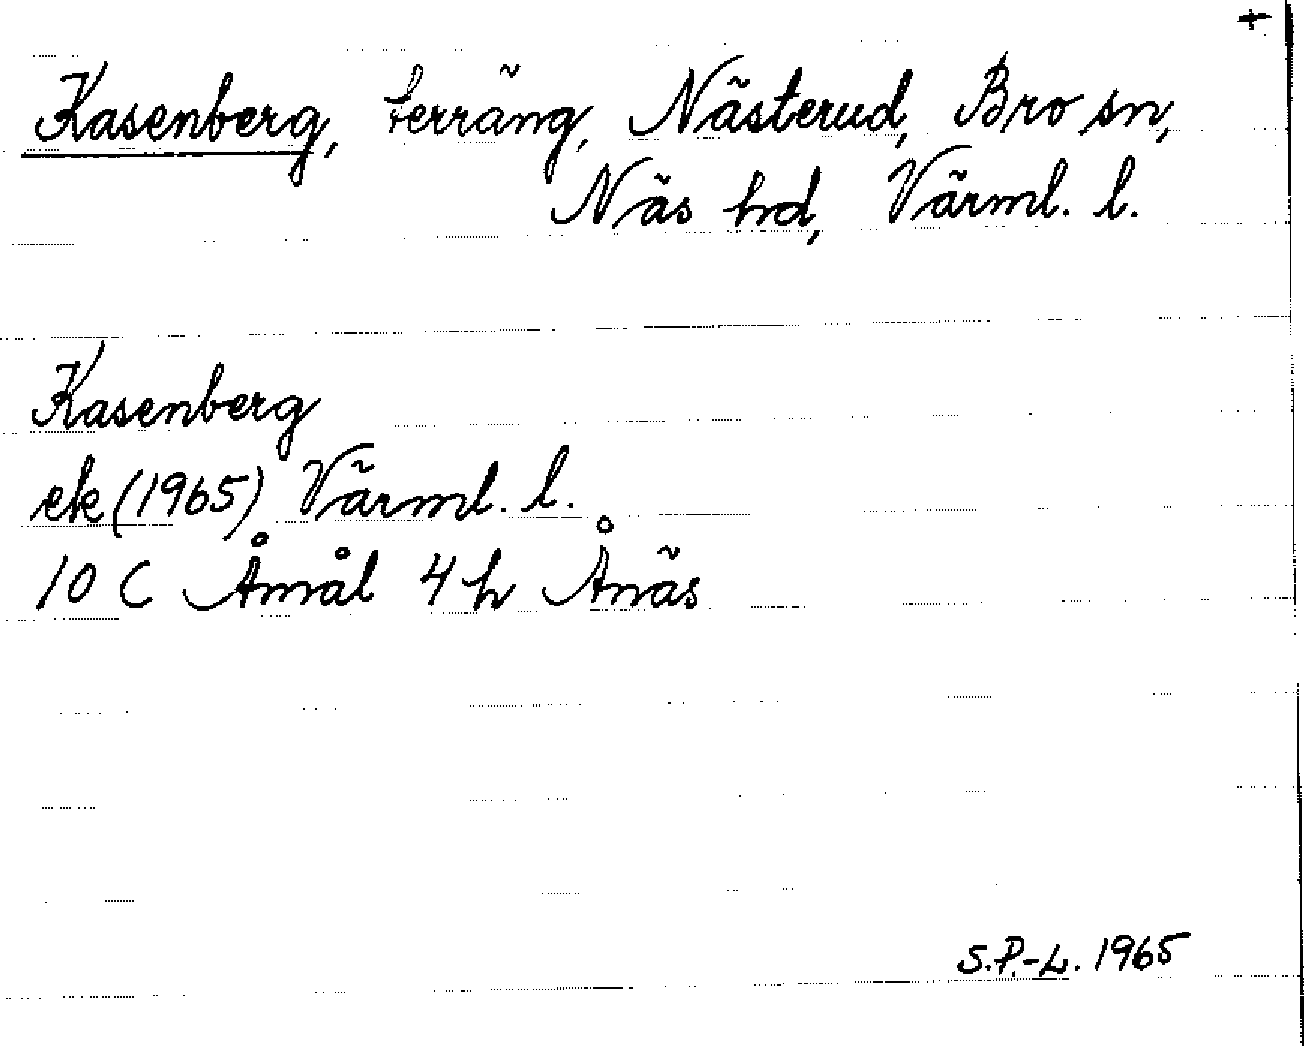 +
Kasenberg, terräng, Nästerud, Bro sn,
Näs hd, Värml. l.
Kasenberg
ek (1965) Värml. l.
10 C Åmål 4 h Ånäs
S.P.-L. 1965